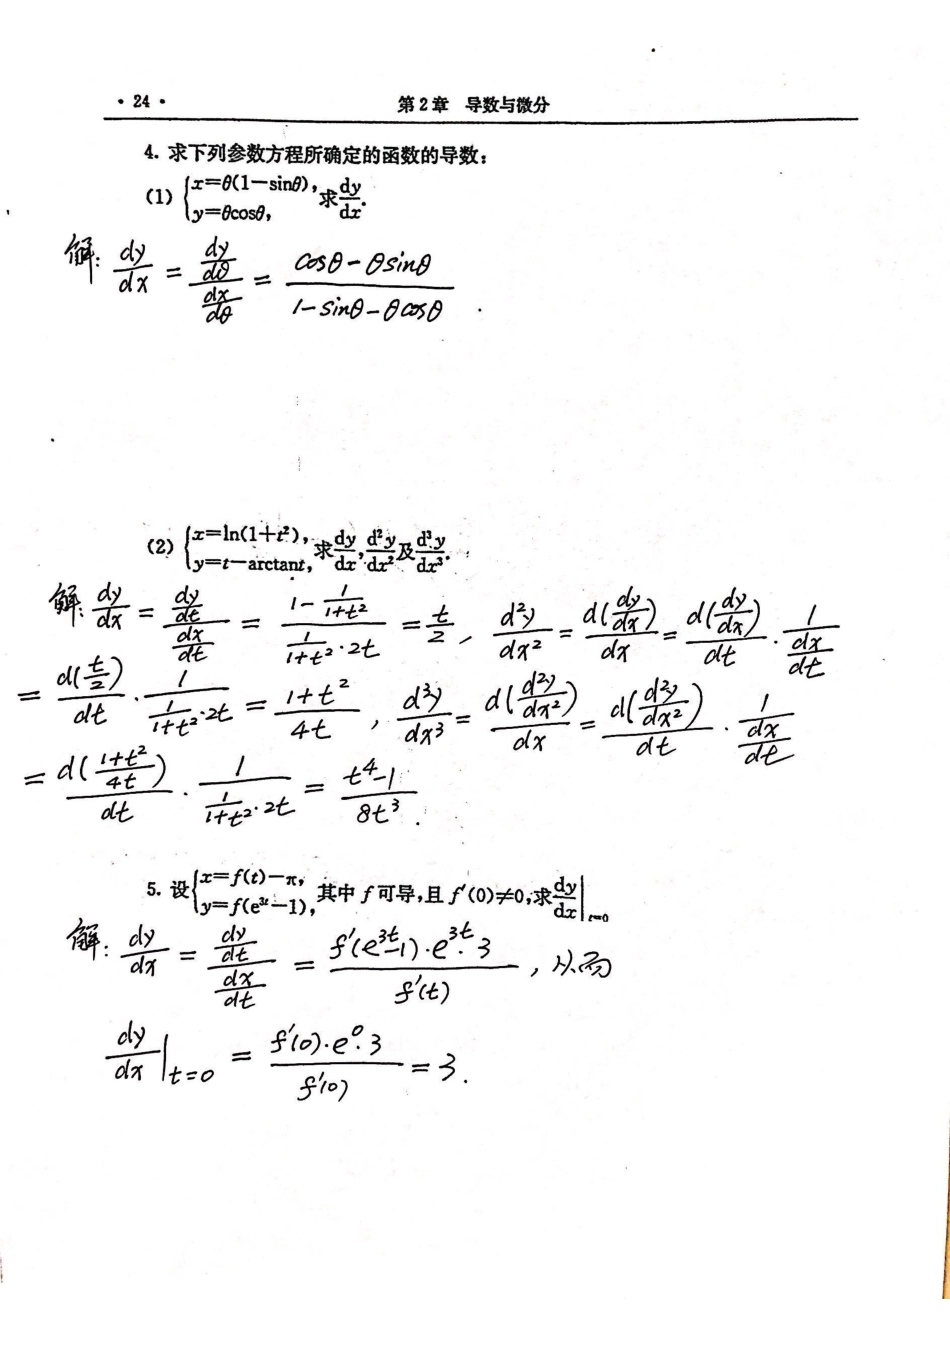 · 24 · 第2章 导数与微分
4. 求下列参数方程所确定的函数的导数:
(1) {x=θ(1-sinθ), y=θcosθ, 求 dy/dx.
解: dy/dx = (dy/dθ)/(dx/dθ) = (cosθ-θsinθ)/(1-sinθ-θcosθ).
(2) {x=ln(1+t²), y=t-arctant, 求 dy/dx, d²y/dx² 及 d³y/dx³.
解: dy/dx = (dy/dt)/(dx/dt) = (1-1/(1+t²))/(1/(1+t²)·2t) = t/2, d²y/dx² = d(dy/dx)/dx = d(dy/dx)/dt · 1/(dx/dt)
= d(t/2)/dt · 1/(1/(1+t²)·2t) = (1+t²)/4t, d³y/dx³ = d(d²y/dx²)/dx = d(d²y/dx²)/dt · 1/(dx/dt)
= d((1+t²)/4t)/dt · 1/(1/(1+t²)·2t) = (t⁴-1)/8t³.
5. 设{x=f(t)-π, y=f(e³ᵗ-1), 其中 f 可导,且 f′(0)≠0,求 dy/dx|t=0
解: dy/dx = (dy/dt)/(dx/dt) = f′(e³ᵗ-1)·e³ᵗ·3/f′(t), 从而
dy/dx|t=0 = f′(0)·e⁰·3/f′(0) = 3.